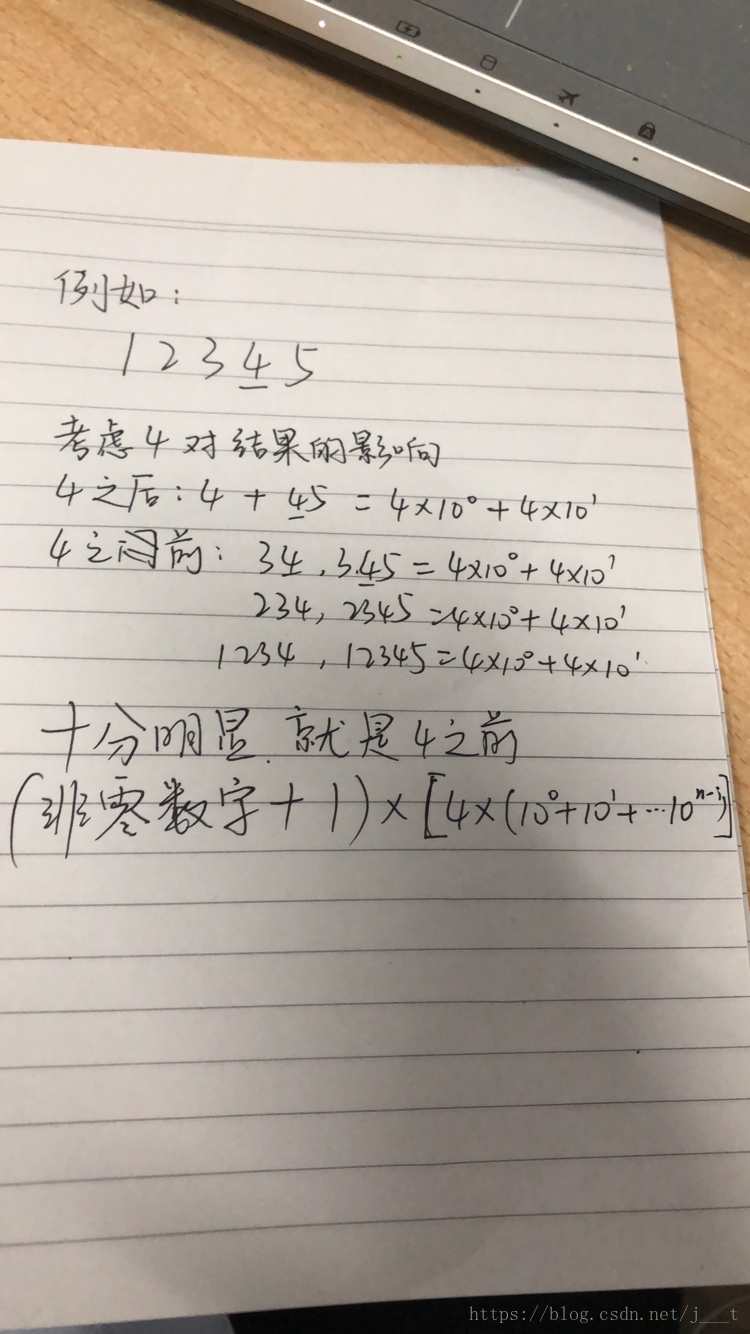 例如：
12345
考虑4对结果的影响
4之后：4 + 45 = 4×10⁰ + 4×10¹
4之前：34，345 = 4×10⁰ + 4×10¹
234，2345 = 4×10⁰ + 4×10¹
1234，12345 = 4×10⁰ + 4×10¹
十分明显．就是4之前
(非零数字 + 1) × [4×(10⁰+10¹+⋯10ⁿ⁻ⁱ)]
https://blog.csdn.net/j___t